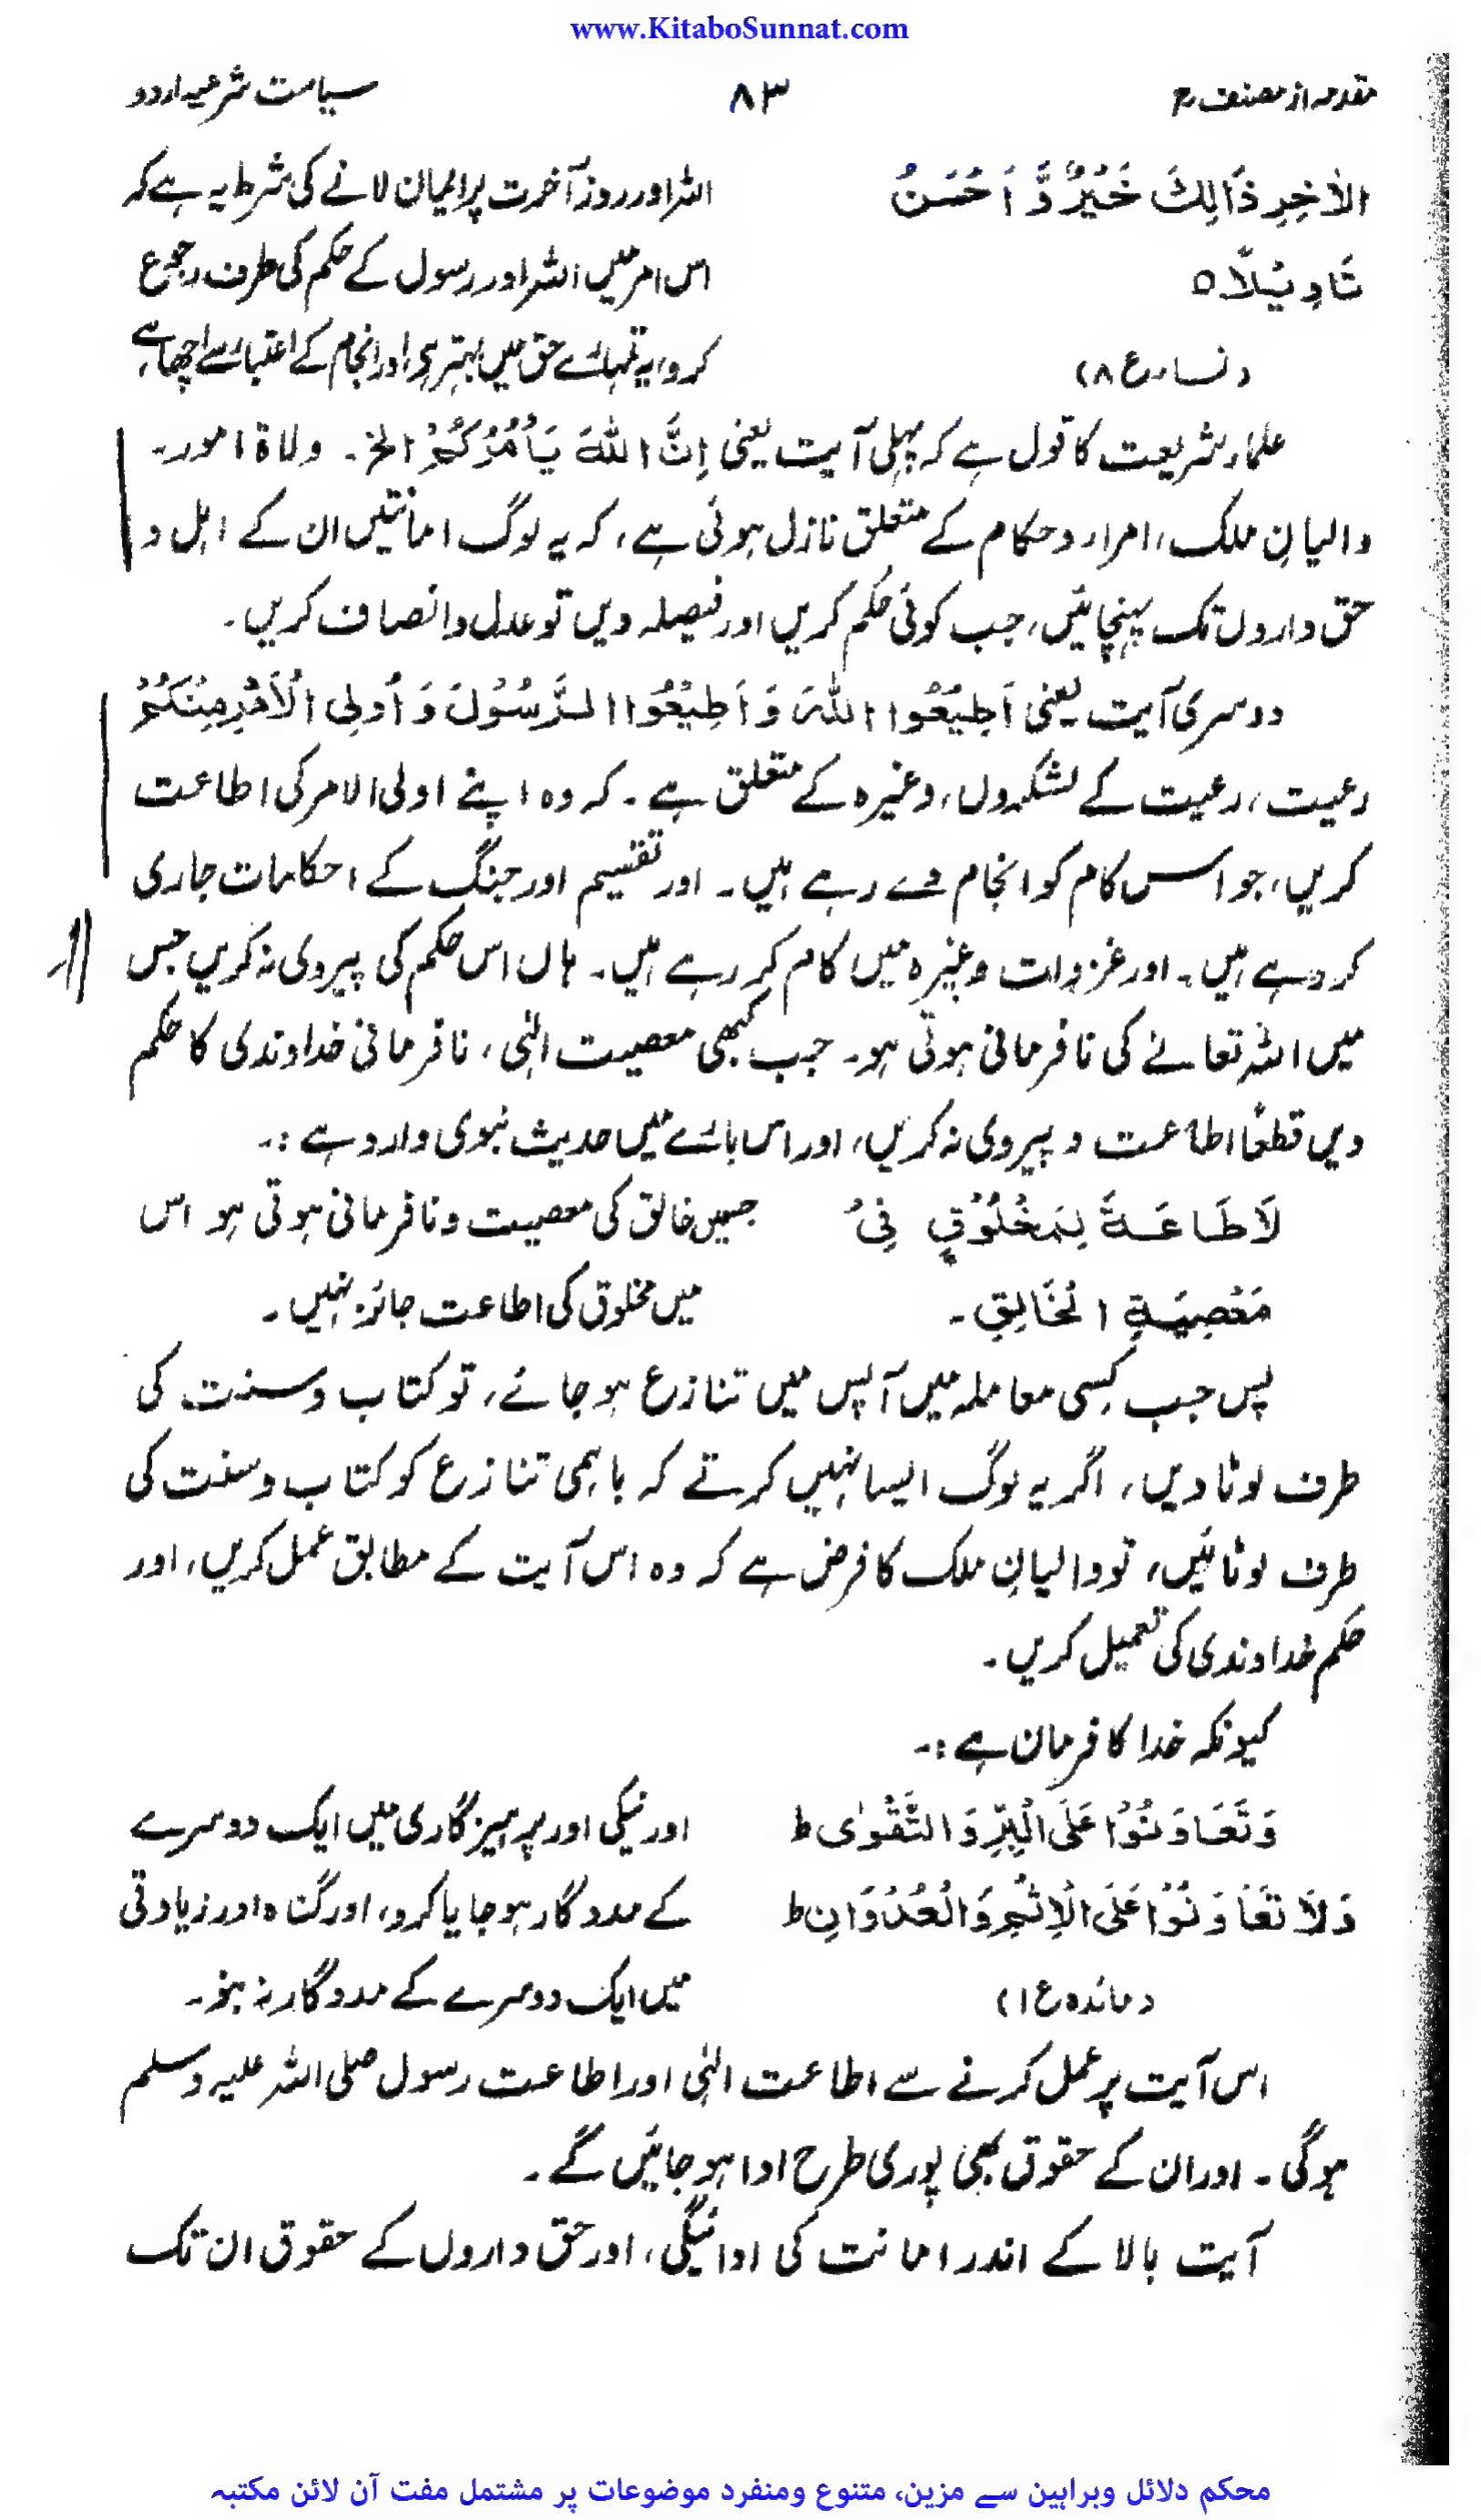 www.KitaboSunnat.com
مقدمہ از مصنف رح ۸۳ سیاست شرعیہ اردو
الْاٰخِرِ ذٰالِكَ خَيْرٌ وَّ اَحْسَنُ
تَاْوِيْلًا ٥
(نساء۔ ع ۸)
اللہ اور روز آخرت پر ایمان لانے کی شرط یہ ہے کہ
اس امر میں اللہ اور رسول کے حکم کی طرف رجوع
کرو، یہ تمہارے حق میں بہتر ہے اور انجام کے اعتبار سے اچھا ہے
علماء شریعت کا قول ہے کہ پہلی آیت یعنی اِنَّ اللّٰهَ يَاْمُرُكُمْ الخ۔ ولاۃ امور۔
والیانِ ملک، امراء و حکام کے متعلق نازل ہوئی ہے، کہ یہ لوگ امانتیں ان کے اہل و
حق داروں تک پہنچائیں، جب کوئی حکم کریں اور فیصلہ دیں تو عدل و انصاف کریں۔
دوسری آیت یعنی اَطِيْعُوا اللّٰهَ وَ اَطِيْعُوا الرَّسُوْلَ وَ اُولِى الْاَمْرِ مِنْكُمْ
رعیت، رعیت کے لشکروں، وغیرہ کے متعلق ہے۔ کہ وہ اپنے اولی الامر کی اطاعت
کریں، جو اس کام کو انجام دے رہے ہیں۔ اور تقسیم اور جنگ کے احکامات جاری
کر رہے ہیں۔ اور غزوات وغیرہ میں کام کر رہے ہیں۔ ہاں اس حکم کی پیروی نہ کریں جس
میں اللہ تعالےٰ کی نافرمانی ہوتی ہو۔ جب کبھی معصیت الٰہی، نافرمانی خداوندی کا حکم
دیں قطعًا اطاعت و پیروی نہ کریں، اور اس بارے میں حدیث نبوی وارد ہے :۔
لَا طَاعَةَ لِمَخْلُوْقٍ فِىْ
مَعْصِيَةِ الْخَالِقِ۔
جسمیں خالق کی معصیت و نافرمانی ہوتی ہو اس
میں مخلوق کی اطاعت جائز نہیں۔
پس جب کسی معاملہ میں آپس میں تنازع ہو جائے، تو کتاب و سنت کی
طرف لوٹا دیں، اگر یہ لوگ ایسا نہیں کرتے کہ باہمی تنازع کو کتاب و سنت کی
طرف لوٹائیں، تو والیانِ ملک کا فرض ہے کہ وہ اس آیت کے مطابق عمل کریں، اور
حکم خداوندی کی تعمیل کریں۔
کیونکہ خدا کا فرمان ہے :۔
وَتَعَاوَنُوْا عَلَى الْبِرِّ وَ التَّقْوٰى ط
وَلَا تَعَاوَنُوْا عَلَى الْاِثْمِ وَ الْعُدْوَانِ ط
(مائدہ ع ۱)
اور نیکی اور پرہیزگاری میں ایک دوسرے
کے مددگار ہو جایا کرو، اور گناہ اور زیادتی
میں ایک دوسرے کے مددگار نہ بنو۔
اس آیت پر عمل کرنے سے اطاعت الٰہی اور اطاعت رسول صلی اللہ علیہ وسلم
ہوگی۔ اور ان کے حقوق بھی پوری طرح ادا ہو جائیں گے۔
آیت بالا کے اندر امانت کی ادائیگی، اور حق داروں کے حقوق ان تک
محکم دلائل وبراہین سے مزین، متنوع ومنفرد موضوعات پر مشتمل مفت آن لائن مکتبہ